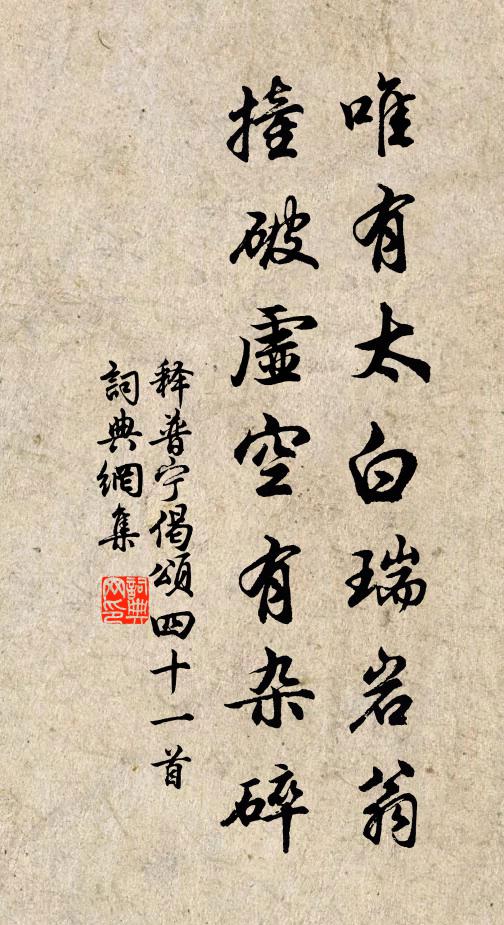 唯有太白瑞岩翁
撞破虚空有杂碎
释普宁偈颂四十一首
詞典網集
詞典